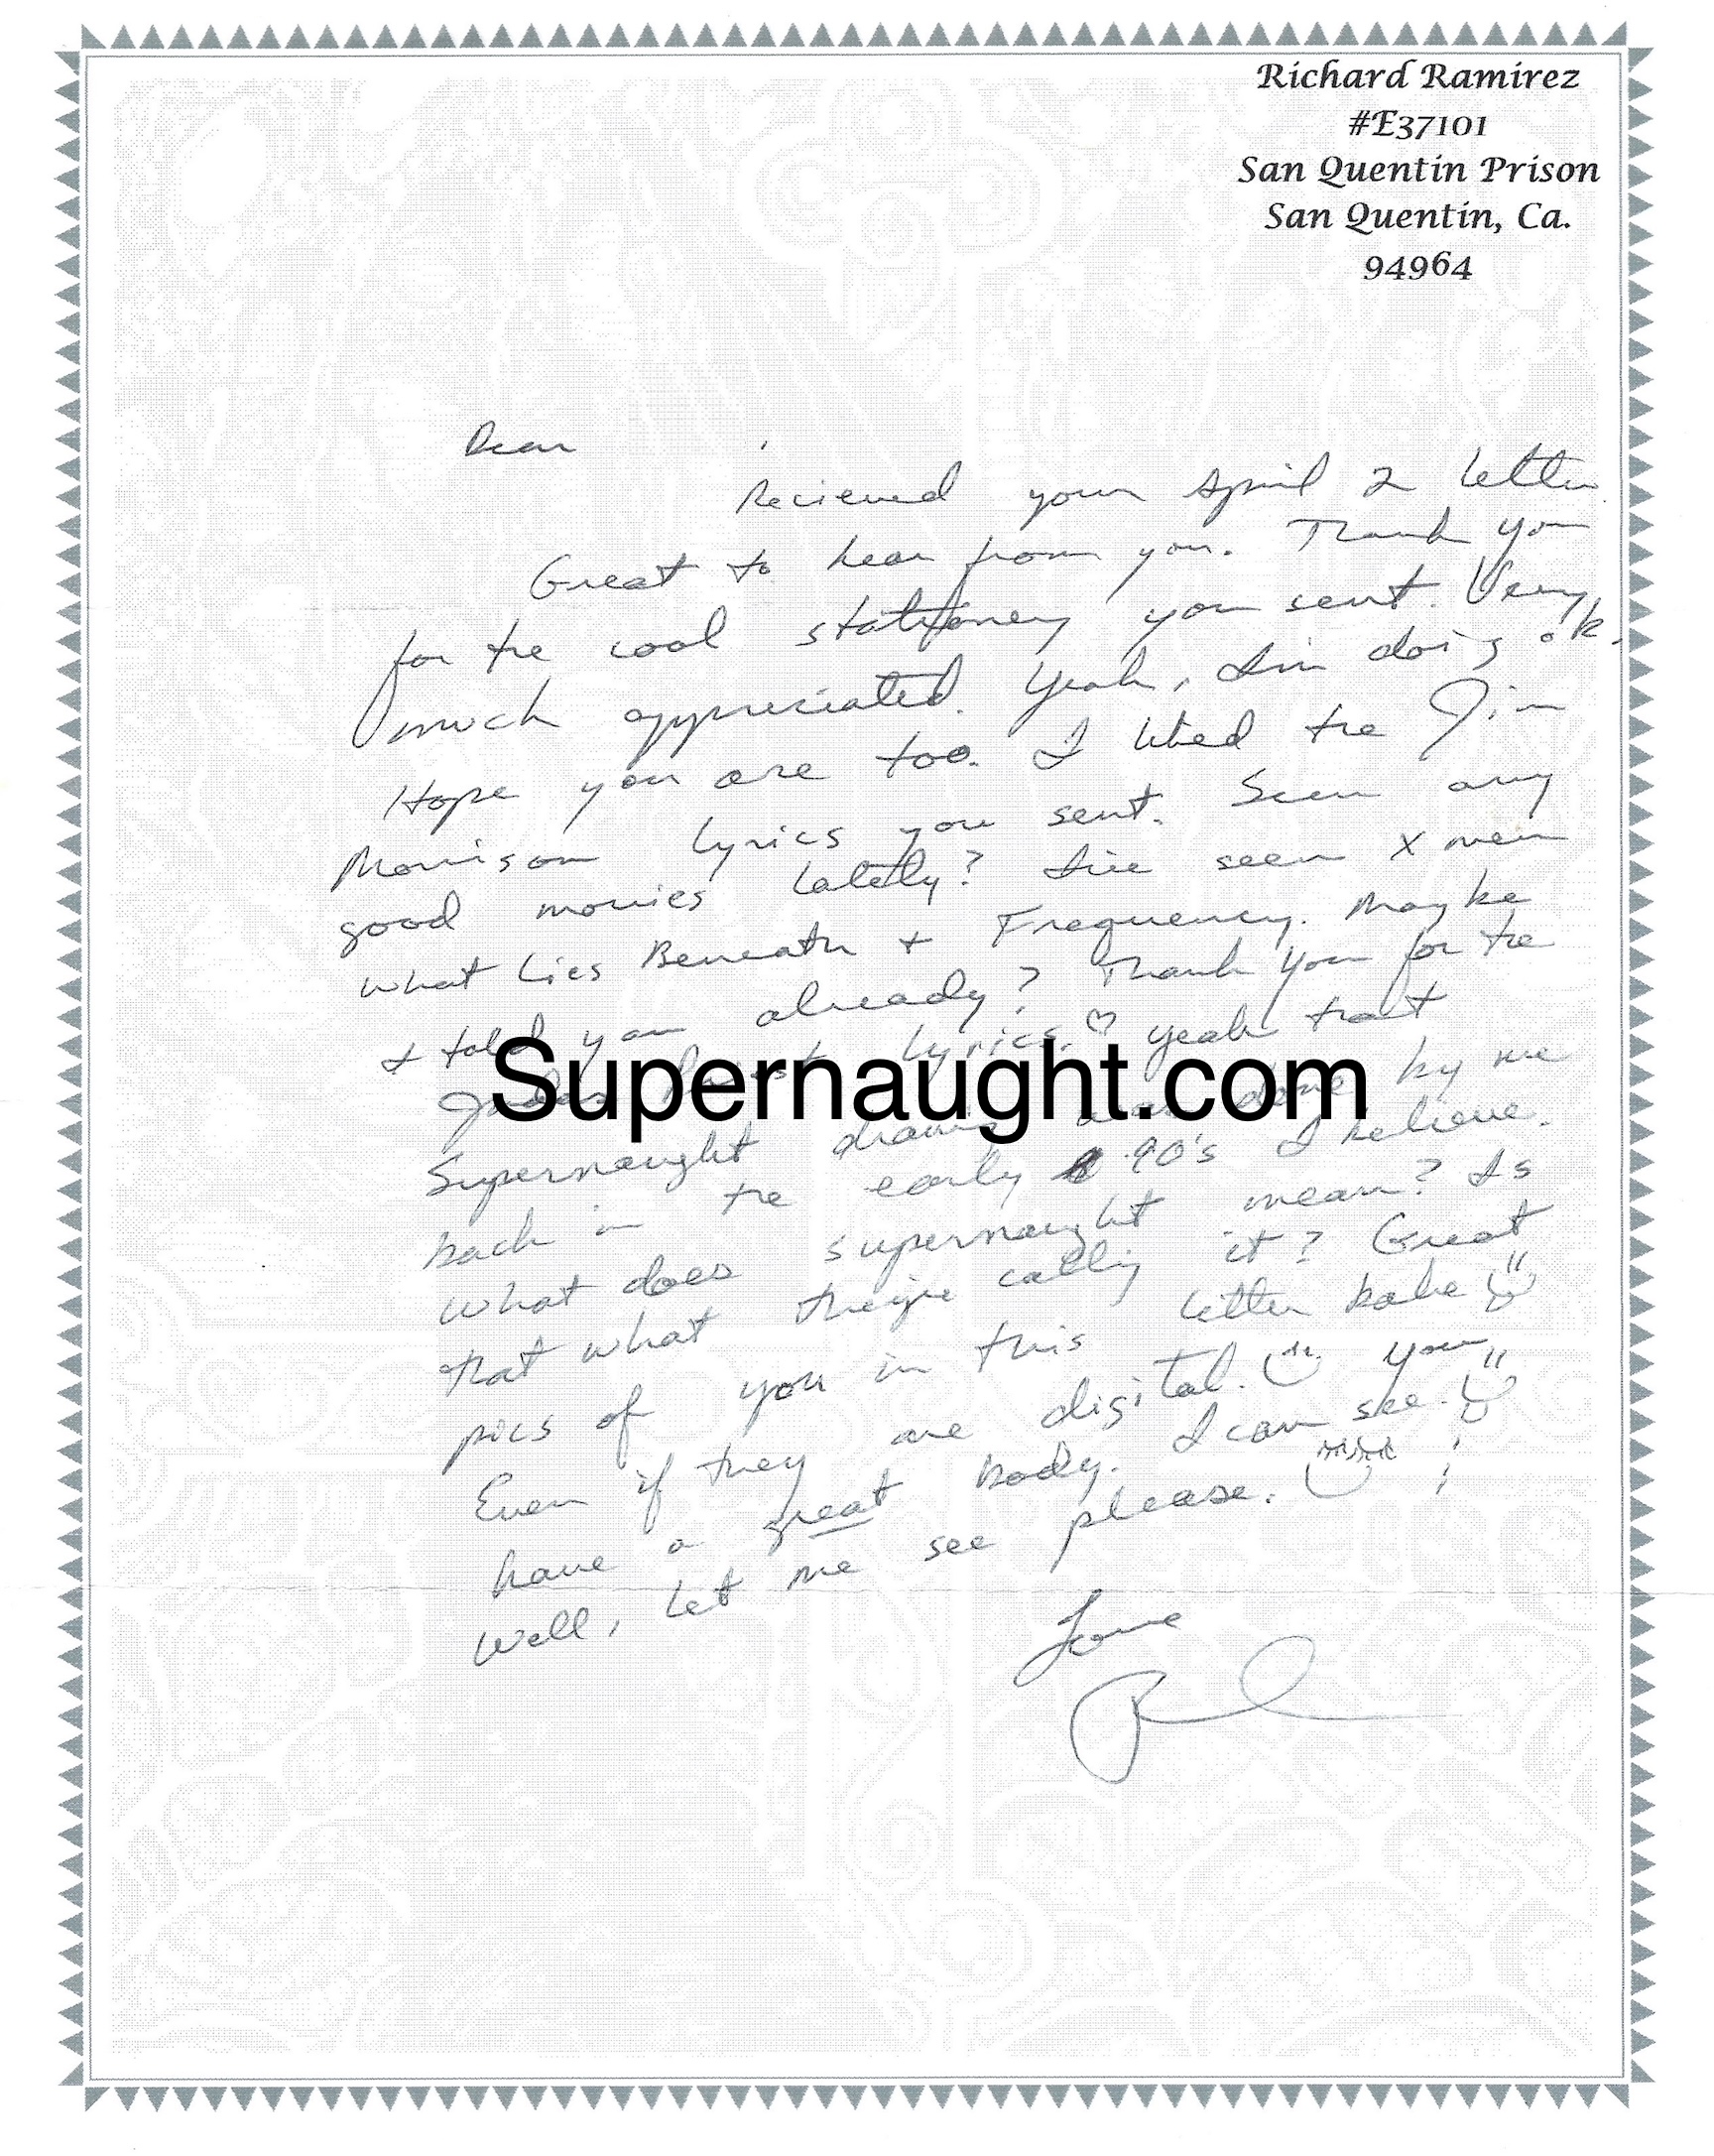 Richard Ramirez
#E37101
San Quentin Prison
San Quentin, Ca.
94964
Dear ,
Recieved your April 2 letter.
Great to hear from you. Thank you
for the cool stationery you sent. Very
much appreciated. Yeah, I'm doing ok.
Hope you are too. I liked the Jim
Morrison lyrics you sent. Seen any
good movies lately? I've seen X men
What Lies Beneath + Frequency. Maybe
I told you already? Thank you for the
Judas Priest lyrics. ♡ Yeah that
Supernaught.com
Supernaught drawing was done by me
back in the early 90's I believe.
What does supernaught mean? Is
that what they're calling it? Great
pics of you in this letter babe
Even if they are digital. You
have a great body. I can see.
Well, let me see please.
Love